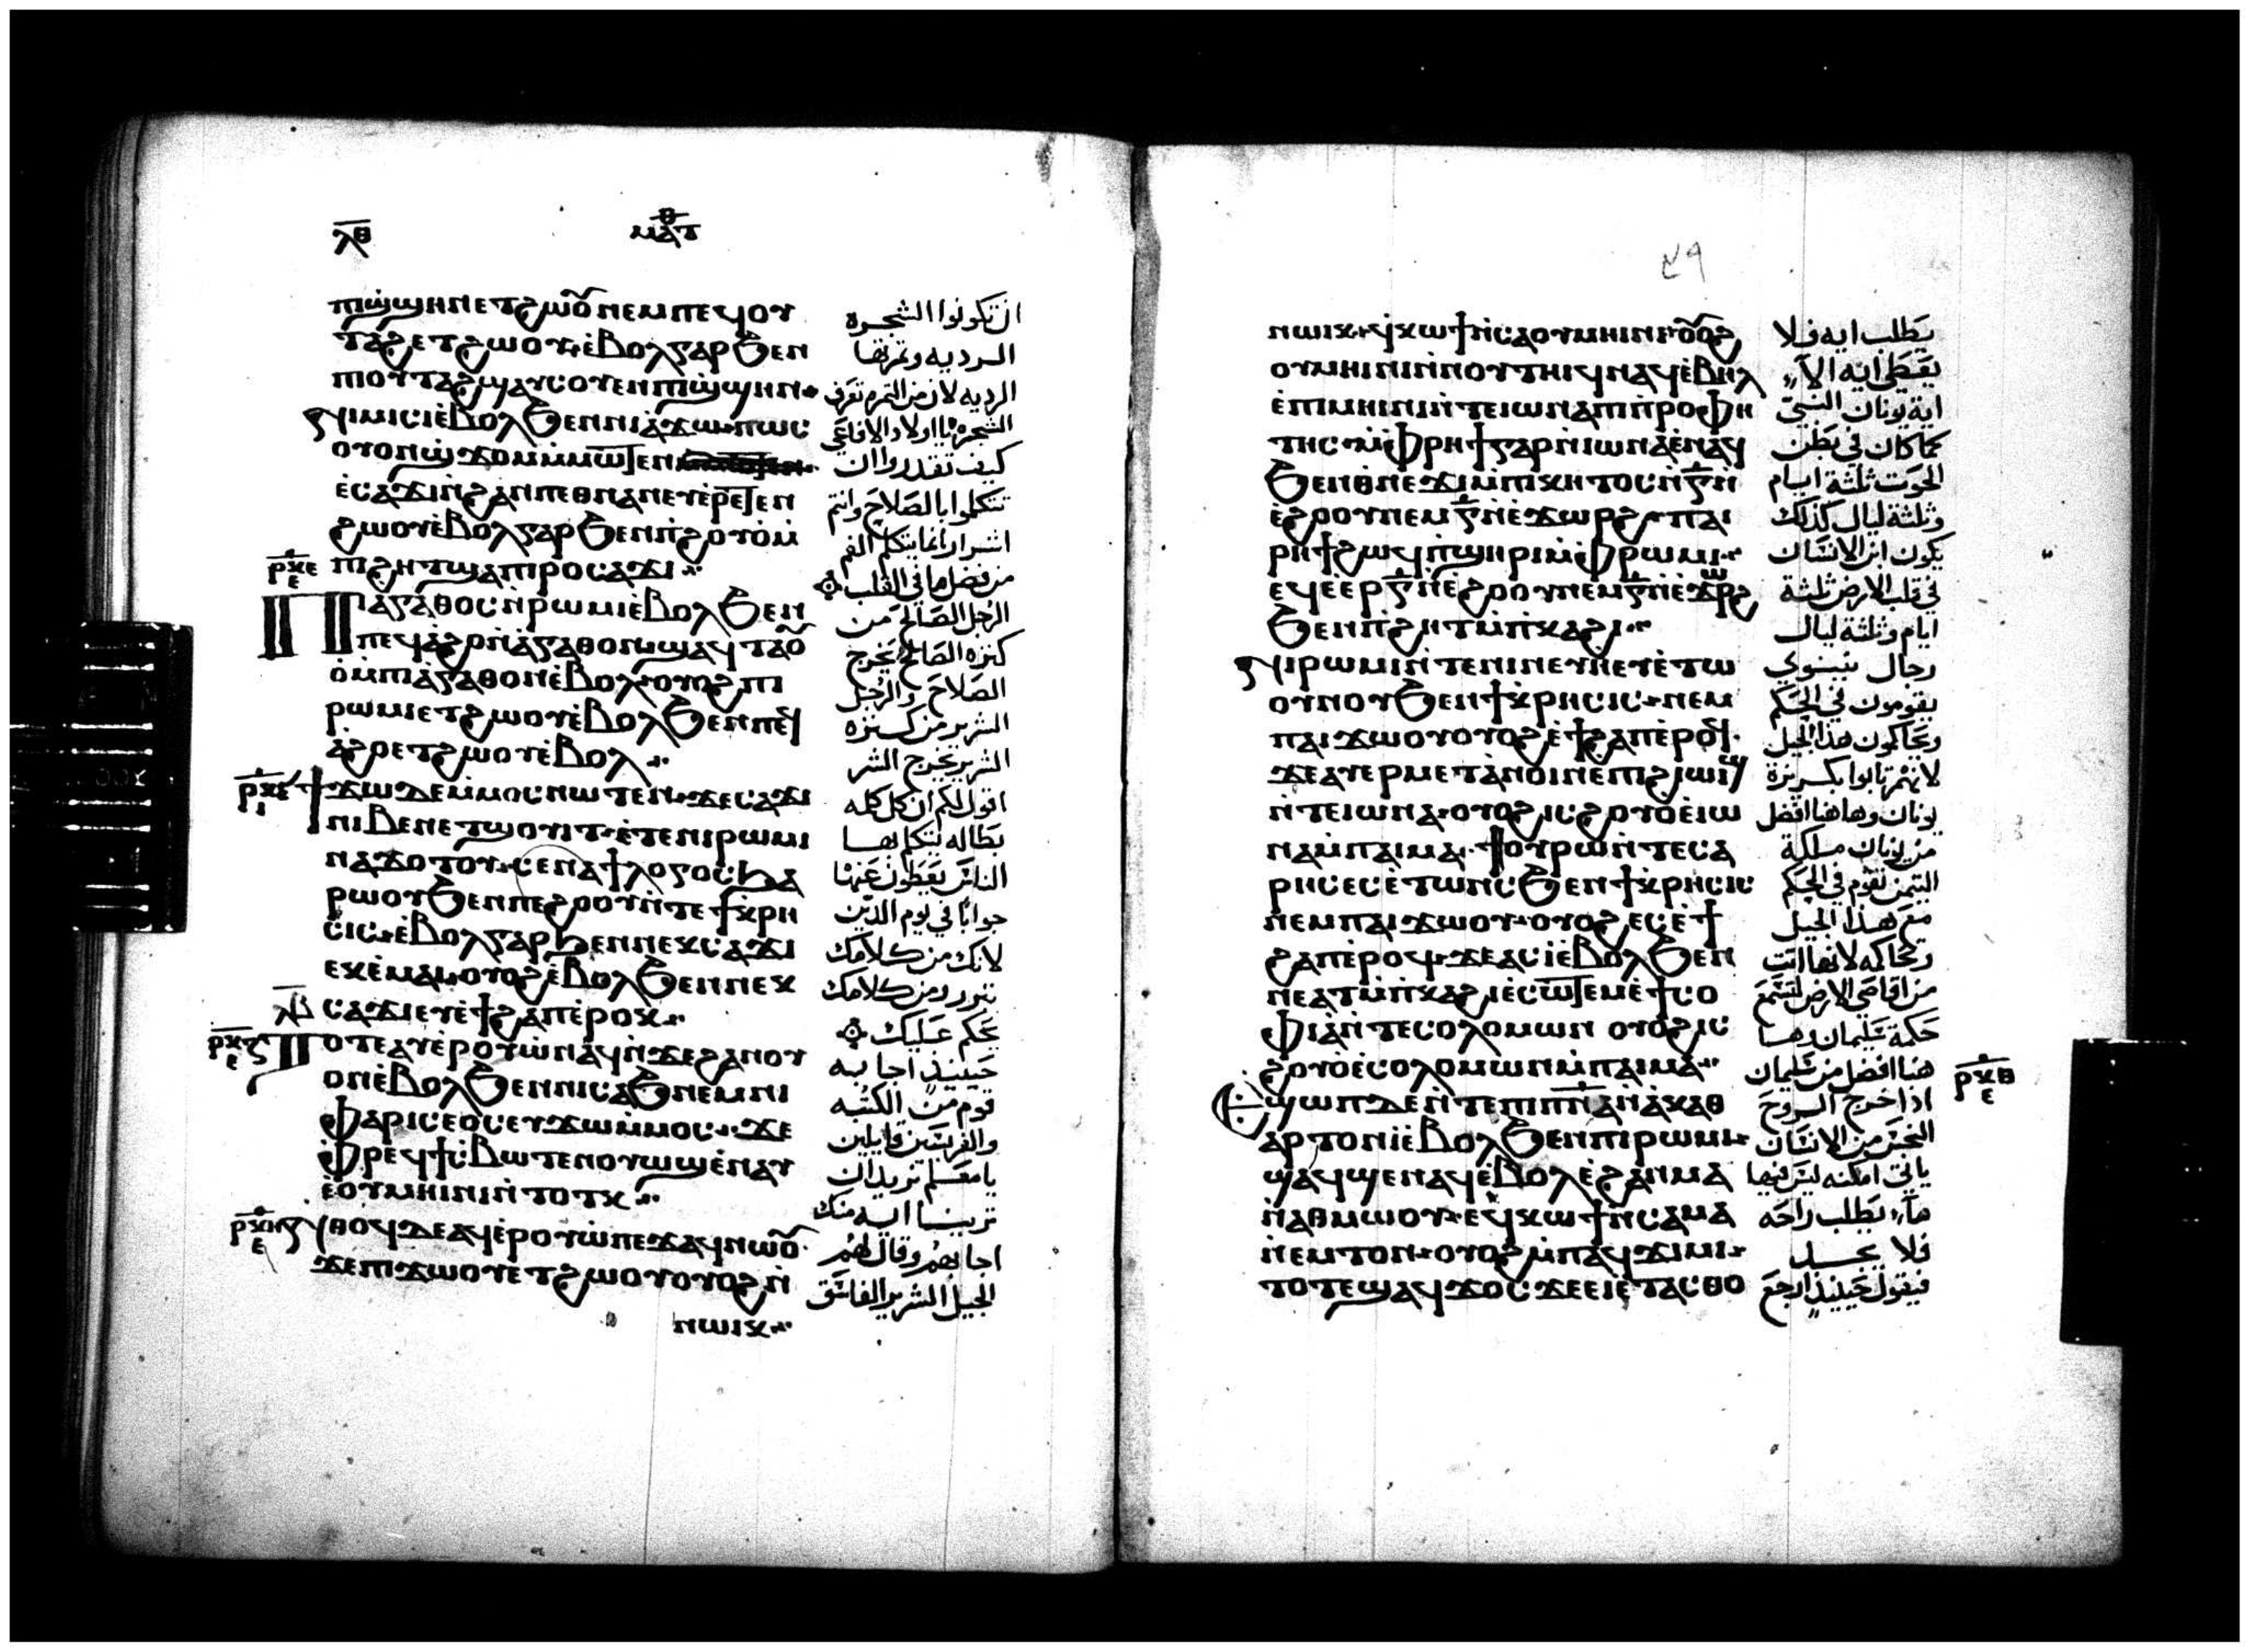 ⲗⲑ
ⲙⲁⲧ
ⲡⲓϣϣⲏⲛ ⲉⲧϩⲱⲟⲩ ⲛⲉⲙ ⲡⲉϥⲟⲩ
ⲧⲁϩ ⲉⲧϩⲱⲟⲩ ⲉⲃⲟⲗ ⲅⲁⲣ ϧⲉⲛ
ⲡⲓⲟⲩⲧⲁϩ ϣⲁⲩⲥⲟⲩⲉⲛ ⲡⲓϣϣⲏⲛ
ⲛⲓⲙⲓⲥⲓ ⲉⲃⲟⲗ ϧⲉⲛ ⲛⲓⲁϫⲱ ⲡⲱⲥ
ⲟⲩⲟⲛ ϣϫⲟⲙ ⲙⲙⲱⲧⲉⲛ
ⲉⲥⲁϫⲓ ⲛϩⲁⲛⲡⲉⲑⲛⲁⲛⲉⲩ ⲉⲣⲉⲧⲉⲛ
ϩⲱⲟⲩ ⲉⲃⲟⲗ ⲅⲁⲣ ϧⲉⲛ ⲡϩⲟⲩⲟ ⲙ
ⲡⲓϩⲏⲧ ϣⲁ ⲡⲓⲣⲟ ⲥⲁϫⲓ
ⲡⲓⲁⲅⲁⲑⲟⲥ ⲛⲣⲱⲙⲓ ⲉⲃⲟⲗ ϧⲉⲛ
ⲡⲉϥⲁϩⲟ ⲛⲁⲅⲁⲑⲟⲛ ϣⲁϥⲧⲁⲟⲩ
ⲟ ⲙⲡⲓⲁⲅⲁⲑⲟⲛ ⲉⲃⲟⲗ ⲟⲩⲟϩ ⲡⲓ
ⲣⲱⲙⲓ ⲉⲧϩⲱⲟⲩ ⲉⲃⲟⲗ ϧⲉⲛ ⲡⲉϥ
ⲁϩⲟ ⲉⲧϩⲱⲟⲩ ⲉⲃⲟⲗ
ϯϫⲱ ⲇⲉ ⲙⲙⲟⲥ ⲛⲱⲧⲉⲛ ϫⲉ ⲥⲁϫⲓ
ⲛⲓⲃⲉⲛ ⲉⲧϣⲟⲩⲓⲧ ⲉⲧⲉ ⲛⲓⲣⲱⲙⲓ
ⲛⲁϫⲟⲧⲟⲩ ⲥⲉⲛⲁϯ ⲗⲟⲅⲟⲥ ϧⲁ
ⲣⲱⲟⲩ ϧⲉⲛ ⲡⲉϩⲟⲟⲩ ⲛⲧⲉ ϯⲕⲣⲏ
ⲥⲓⲥ ⲉⲃⲟⲗ ⲅⲁⲣ ϧⲉⲛ ⲛⲉⲕⲥⲁϫⲓ
ⲉⲕⲉⲙⲁⲓ ⲟⲩⲟϩ ⲉⲃⲟⲗ ϧⲉⲛ ⲛⲉⲕ
ⲥⲁϫⲓ ⲉⲩⲉϯϩⲁⲡ ⲉⲣⲟⲕ
ⲧⲟⲧⲉ ⲁⲩⲉⲣⲟⲩⲱ ⲛⲁϥ ⲛϫⲉ ϩⲁⲛⲟⲩ
ⲟⲛ ⲉⲃⲟⲗ ϧⲉⲛ ⲛⲓⲥⲁϧ ⲛⲉⲙ ⲛⲓ
ⲫⲁⲣⲓⲥⲉⲟⲥ ⲉⲩϫⲱ ⲙⲙⲟⲥ ϫⲉ
ⲫⲣⲉϥϯⲥⲃⲱ ⲧⲉⲛⲟⲩⲱϣ ⲉⲛⲁⲩ
ⲉⲟⲩⲙⲏⲓⲛⲓ ⲛⲧⲟⲧⲕ
ⲛⲑⲟϥ ⲇⲉ ⲁϥⲉⲣⲟⲩⲱ ⲡⲉϫⲁϥ ⲛⲱⲟⲩ
ϫⲉ ⲡⲓϫⲱⲟⲩ ⲉⲧϩⲱⲟⲩ ⲟⲩⲟϩ ⲛ
ⲛⲱⲓⲕ
ان تكونوا الشجره
الرديه وثمرتها
الرديه لان من الثمره تعرف
الشجره يا اولاد الافاعي
كيف تقدروا ان
تتكلموا بالصلاح وانتم
اشرار انما يتكلم الفم
من فضل ما في القلب
الرجل الصالح من
كنزه الصالح يخرج
الصلاح والرجل
الشرير من كنزه
الشرير يخرج الشر
اقول لكم ان كل كلمه
بطاله يتكلم بها
الناس يعطون عنها
جوابا في يوم الدين
لانك من كلامك
تتبرر ومن كلامك
يحكم عليك
حينيذ اجابه
قوم من الكتبه
والفريسين قايلين
يا معلم نريد ان
ترينا ايه منك
اجابهم وقال لهم
الجيل الشرير الفاسق
٤٩
ⲛⲱⲓⲕ ϥⲕⲱϯ ⲛⲥⲁ ⲟⲩⲙⲏⲓⲛⲓ ⲟⲩⲟϩ
ⲟⲩⲙⲏⲓⲛⲓ ⲛⲛⲟⲩⲧⲏⲓϥ ⲛⲁϥ ⲉⲃⲏⲗ
ⲉⲡⲓⲙⲏⲓⲛⲓ ⲛⲧⲉ ⲓⲱⲛⲁ ⲡⲓⲡⲣⲟⲫⲏ
ⲧⲏⲥ ⲙⲫⲣⲏϯ ⲅⲁⲣ ⲛⲓⲱⲛⲁ ⲉⲛⲁϥ
ϧⲉⲛ ⲑⲛⲉϫⲓ ⲙⲡⲓⲕⲏⲧⲟⲥ ⲛⲅ ⲛ
ⲉϩⲟⲟⲩ ⲛⲉⲙ ⲅ ⲛⲉϫⲱⲣϩ ⲡⲁⲓ
ⲣⲏϯ ϩⲱϥ ⲡϣⲏⲣⲓ ⲙⲫⲣⲱⲙⲓ
ⲉϥⲉⲉⲣ ⲅ ⲛⲉϩⲟⲟⲩ ⲛⲉⲙ ⲅ ⲛⲉϫⲱⲣϩ
ϧⲉⲛ ⲡϩⲏⲧ ⲙⲡⲕⲁϩⲓ
ⲛⲓⲣⲱⲙⲓ ⲛⲧⲉ ⲛⲓⲛⲉⲩⲏ ⲉⲩⲉⲧⲱ
ⲟⲩⲛⲟⲩ ϧⲉⲛ ϯⲕⲣⲏⲥⲓⲥ ⲛⲉⲙ
ⲡⲁⲓϫⲱⲟⲩ ⲟⲩⲟϩ ⲉⲩⲉϯϩⲁⲡ ⲉⲣⲟϥ
ϫⲉ ⲁⲩⲉⲣⲙⲉⲧⲁⲛⲟⲓⲛ ⲉⲡϩⲓⲱⲓϣ
ⲛⲧⲉ ⲓⲱⲛⲁ ⲟⲩⲟϩ ⲓⲥ ϩⲟⲩⲟ ⲉⲓⲱ
ⲛⲁ ⲙⲡⲁⲓⲙⲁ ϯⲟⲩⲣⲱ ⲛⲧⲉ ⲥⲁ
ⲣⲏⲥ ⲉⲥⲉⲧⲱⲛⲥ ϧⲉⲛ ϯⲕⲣⲏⲥⲓⲥ
ⲛⲉⲙ ⲡⲁⲓϫⲱⲟⲩ ⲟⲩⲟϩ ⲉⲥⲉϯ
ϩⲁⲡ ⲉⲣⲟϥ ϫⲉ ⲁⲥⲓ ⲉⲃⲟⲗ ϧⲉⲛ
ⲛⲉ ⲁⲩ ⲙⲡⲕⲁϩⲓ ⲉⲥⲱⲧⲉⲙ ⲉϯⲥⲟ
ⲫⲓⲁ ⲛⲧⲉ ⲥⲟⲗⲟⲙⲱⲛ ⲟⲩⲟϩ ⲓⲥ
ϩⲟⲩⲟ ⲉⲥⲟⲗⲟⲙⲱⲛ ⲙⲡⲁⲓⲙⲁ
ⲉϣⲱⲡ ⲇⲉ ⲛⲧⲉ ⲡⲓⲡⲛⲁ ⲛⲁⲕⲁⲑ
ⲁⲣⲧⲟⲛ ⲓ ⲉⲃⲟⲗ ϧⲉⲛ ⲡⲓⲣⲱⲙⲓ
ϣⲁϥϣⲉⲛⲁϥ ⲉⲃⲟⲗ ⲉϩⲁⲛⲙⲁ
ⲛⲁⲑⲙⲱⲟⲩ ⲉϥⲕⲱϯ ⲛⲥⲁ ⲙⲁ
ⲛⲉⲙⲧⲟⲛ ⲟⲩⲟϩ ⲙⲡⲁϥϫⲓⲙⲓ
ⲧⲟⲧⲉ ϣⲁϥϫⲟⲥ ϫⲉ ⲉⲓⲉⲧⲁⲥⲑⲟ
يطلب ايه فلا
يعطى ايه الا
اية يونان النبي
كما كان في بطن
الحوت ثلثة ايام
وثلثة ليال كذلك
يكون ابن الانسان
في قلب الارض ثلثة
ايام وثلثة ليال
رجال نينوي
يقومون في الحكم
ويحاكمون هذا الجيل
لانهم تابوا بكريزة
يونان وهاهنا افضل
من يونان ملكة
التيمن تقوم في الحكم
مع هذا الجيل
وتحاكمه لانها اتت
من اقاصي الارض لتسمع
حكمة سليمان وها
هنا افضل من سليمان
اذا خرج الروح
النجس من الانسان
ياتي امكنه ليس فيها
ماء يطلب راحه
فلا يجد
فيقول حينيذ ارجع